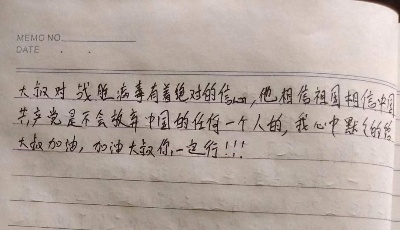 MEMO NO.
DATE . .
大叔对战胜病毒有着绝对的信心,他相信祖国相信中国
共产党是不会放弃中国的任何一个人的,我心中默默的给
大叔加油,加油大叔你一定行!!!